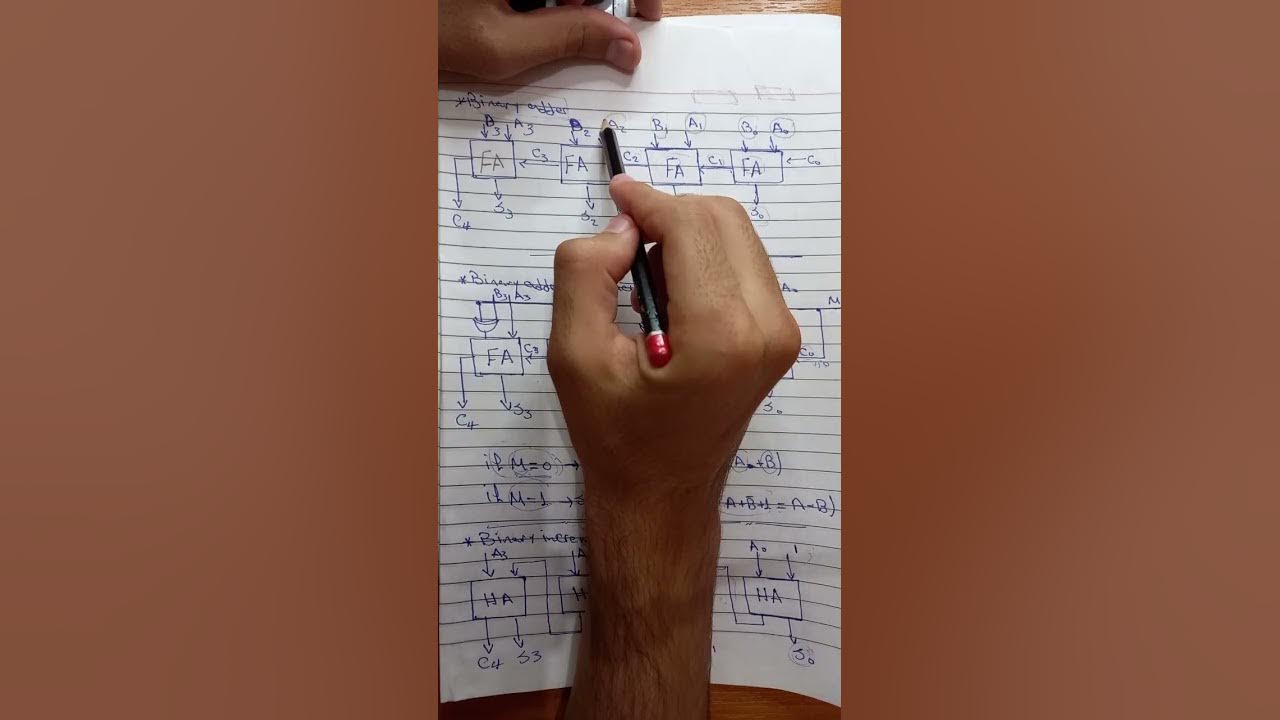 *Binary adder
B3 A3 B2 A2 B1 A1 B0 A0
FA C3 FA C2 FA C1 FA C0
C4 S3 S2 S0
*Binary adde
B3 A3 A0 M
FA C3 C0
C4 S3 S0
if M=0 → A0+B)
if M=1 → A+B̅+1 = A-B)
* Binary increm
A3 A A0 1
HA H HA
C4 S3 S0